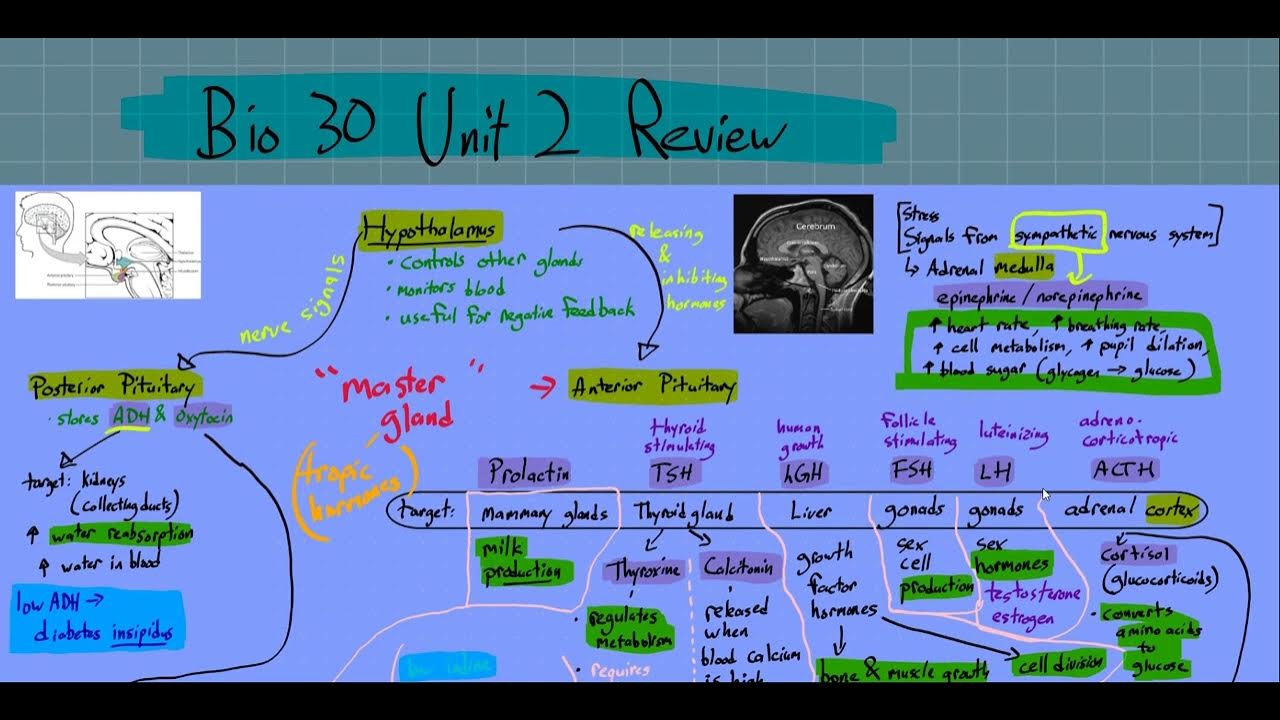 Bio 30 Unit 2 Review
Hypothalamus
• controls other glands
• monitors blood
• useful for negative feedback
nerve signals
releasing
&
inhibiting
hormones
Cerebrum
[Stress
Signals from sympathetic nervous system]
↳ Adrenal medulla
epinephrine / norepinephrine
↑ heart rate, ↑ breathing rate,
↑ cell metabolism, ↑ pupil dilation,
↑ blood sugar (glycogen → glucose)
Posterior Pituitary
• stores ADH & oxytocin
target: kidneys
(collecting ducts)
↑ water reabsorption
↑ water in blood
low ADH →
diabetes insipidus
"master
gland"
(tropic
hormones)
→ Anterior Pituitary
Prolactin
thyroid
stimulating
TSH
human
growth
hGH
follicle
stimulating
FSH
luteinizing
LH
adreno-
corticotropic
ACTH
target: mammary glands Thyroid gland Liver gonads gonads adrenal cortex
milk
production
Thyroxine
• regulates
metabolism
• requires
Calcitonin
released
when
blood calcium
is high
growth
factor
hormones
bone & muscle growth
cell division
sex
cell
production
sex
hormones
testosterone
estrogen
cortisol
(glucocorticoids)
• converts
amino acids
to
glucose
low Iodine